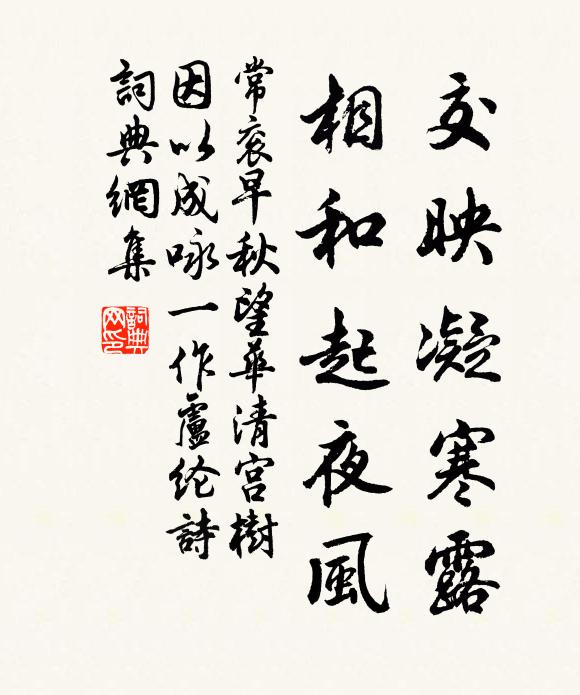 交映凝寒露
相和起夜風
常袞早秋望華清宮樹
因以成咏一作盧纶詩
詞典網集
詞典网印